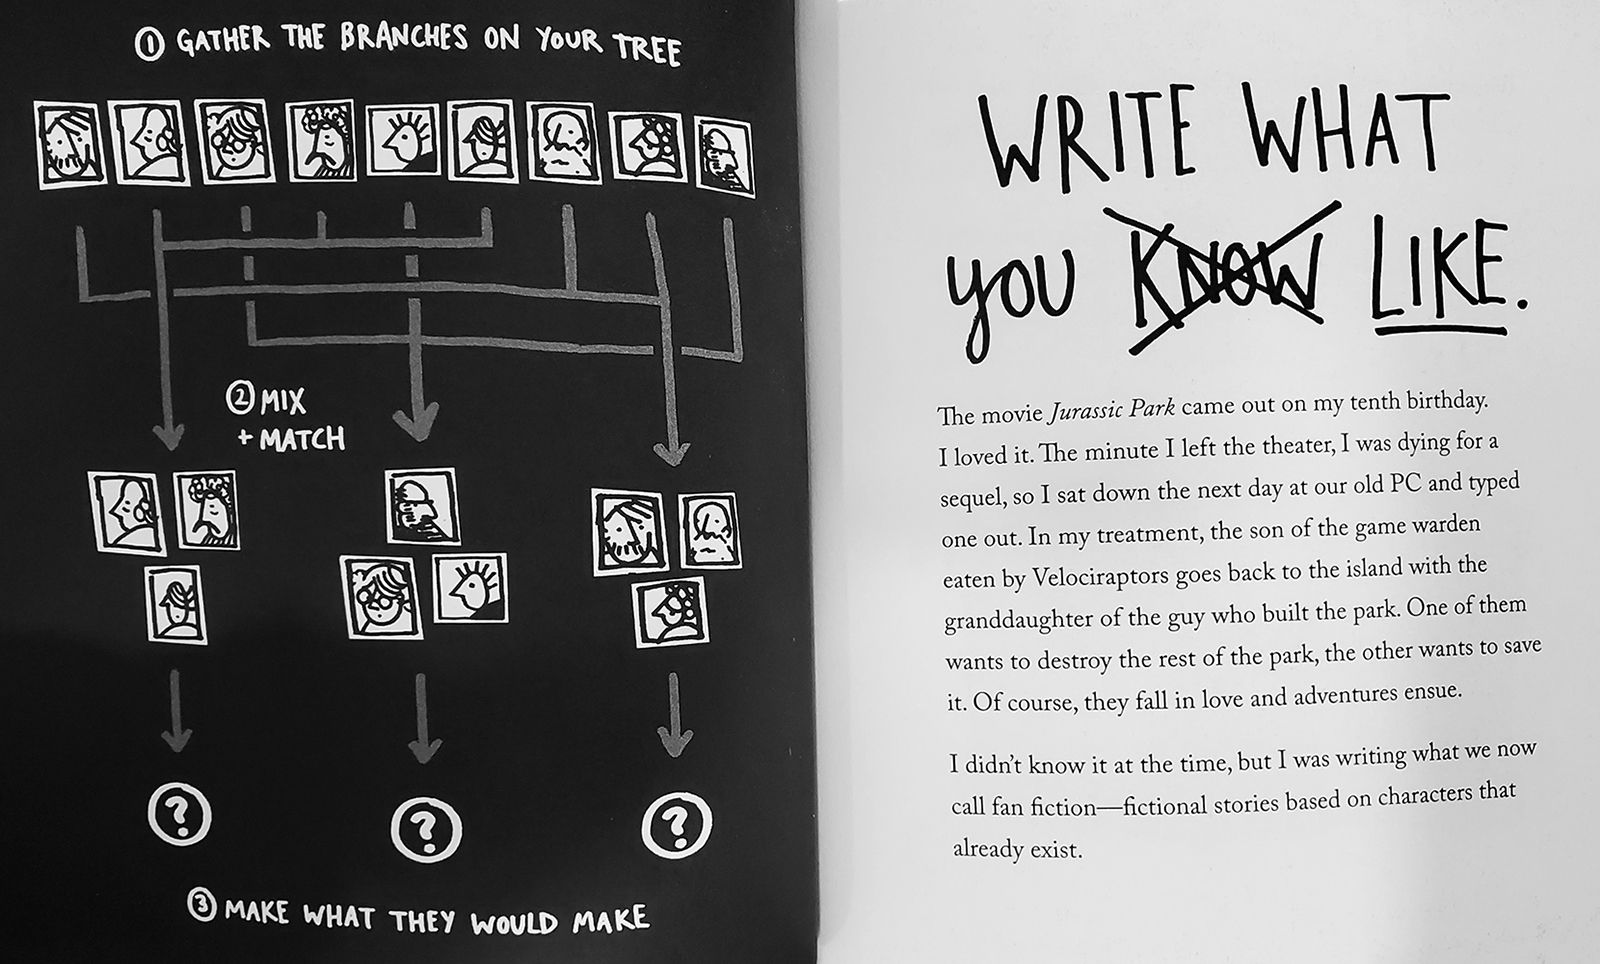 ① GATHER THE BRANCHES ON YOUR TREE
② MIX
+ MATCH
?
?
?
③ MAKE WHAT THEY WOULD MAKE
WRITE WHAT
you KNOW LIKE.
The movie Jurassic Park came out on my tenth birthday.
I loved it. The minute I left the theater, I was dying for a
sequel, so I sat down the next day at our old PC and typed
one out. In my treatment, the son of the game warden
eaten by Velociraptors goes back to the island with the
granddaughter of the guy who built the park. One of them
wants to destroy the rest of the park, the other wants to save
it. Of course, they fall in love and adventures ensue.
I didn’t know it at the time, but I was writing what we now
call fan fiction—fictional stories based on characters that
already exist.